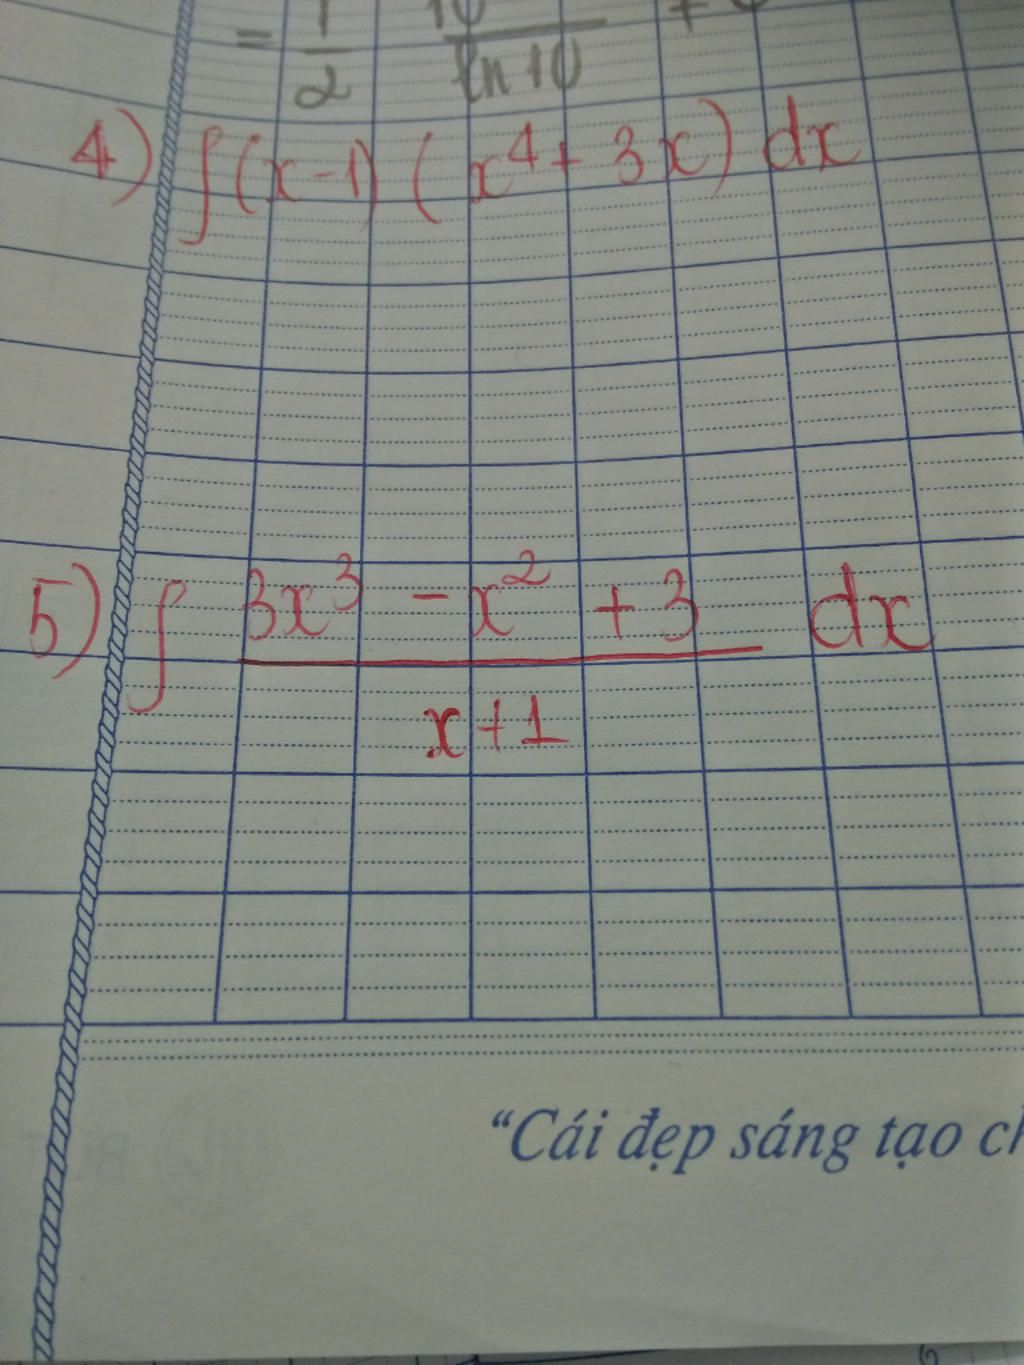 = 1/2
ln 10
4) ∫(x-1) (x⁴+ 3x) dx
5) ∫ 3x³ - x² + 3 dx
x+1
“Cái đẹp sáng tạo